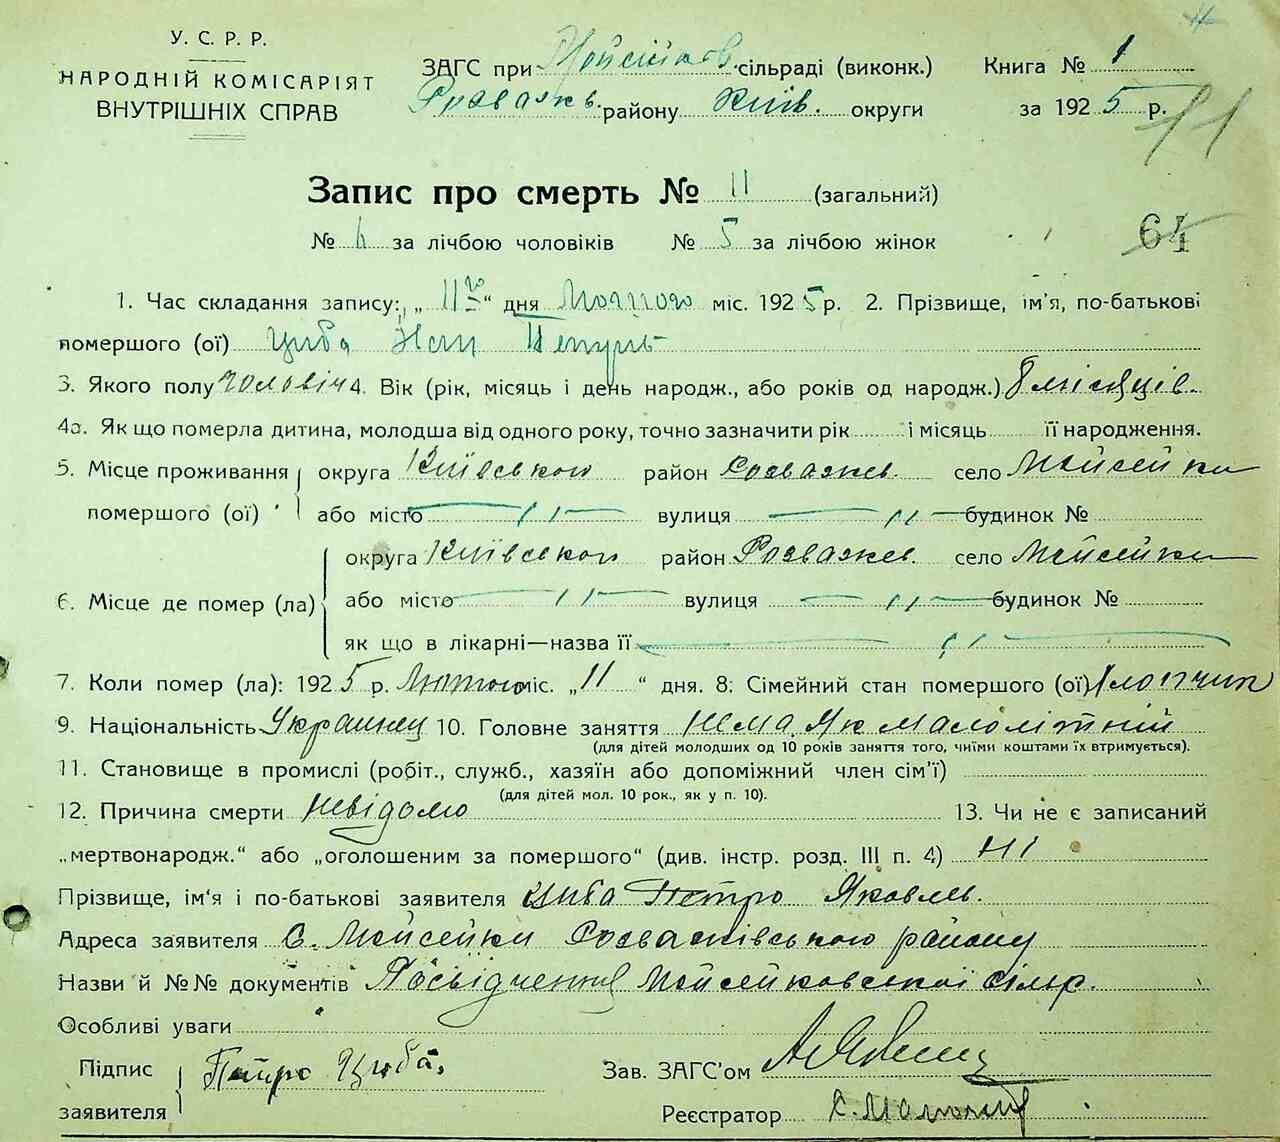 У. С. Р. Р.
НАРОДНІЙ КОМІСАРІЯТ
ВНУТРІШНІХ СПРАВ
ЗАГС при сільраді (виконк.) Книга № 1
Розважів. району Київ. округи за 1925 р.
11
Запис про смерть № 11 (загальний)
№ 6 за лічбою чоловіків № 5 за лічбою жінок
64
1. Час складання запису: „11го“ дня Лютого міс. 1925 р. 2. Прізвище, ім'я, по-батькові
помершого (ої) Циба
3. Якого полу чоловіч 4. Вік (рік, місяць і день народж., або років од народж.) 8 місяців.
4а. Як що померла дитина, молодша від одного року, точно зазначити рік і місяць її народження.
5. Місце проживання округа Київської район Розважев. село Мойсейки
помершого (ої) або місто –"– вулиця –"– будинок №
округа Київської район Розважев. село Мойсейки
6. Місце де помер (ла) або місто –"– вулиця –"– будинок №
як що в лікарні—назва її –"–
7. Коли помер (ла): 1925 р. Лютого міс. „11“ дня. 8. Сімейний стан помершого (ої) Хлопчик
9. Національність Украинец 10. Головне заняття Нема, Як малолітній
(для дітей молодших од 10 років заняття того, чиїми коштами їх втримується).
11. Становище в промислі (робіт., служб., хазяїн або допоміжний член сім'ї)
(для дітей мол. 10 рок., як у п. 10).
12. Причина смерти невідомо 13. Чи не є записаний
„мертвонародж.“ або „оголошеним за помершого“ (див. інстр. розд. III п. 4) Ні
Прізвище, ім'я і по-батькові заявителя Циба Петро Яковль.
Адреса заявителя С. Мойсейки Розважівського району
Назви й №№ документів Посвідчення Мойсейковської сільр.
Особливі уваги
Підпис заявителя Петро Циба. Зав. ЗАГС'ом
Реєстратор